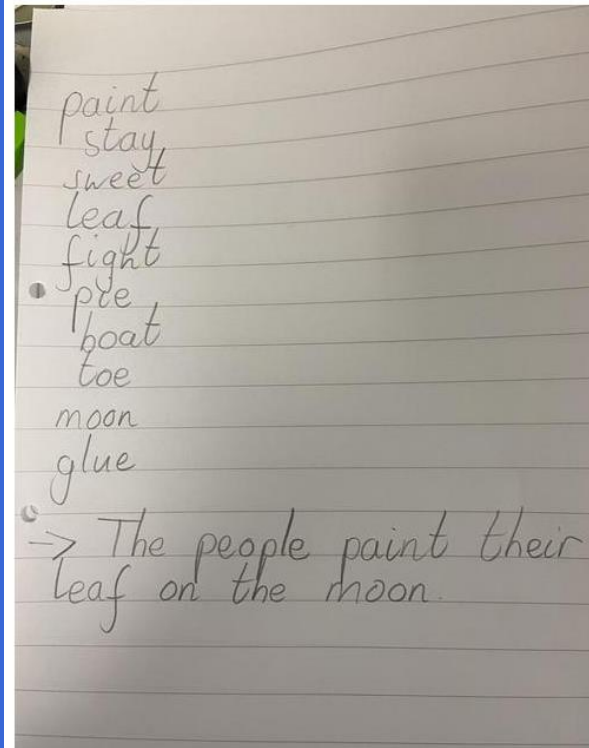 paint
stay
sweet
leaf
fight
pie
boat
toe
moon
glue
→ The people paint their
leaf on the moon.